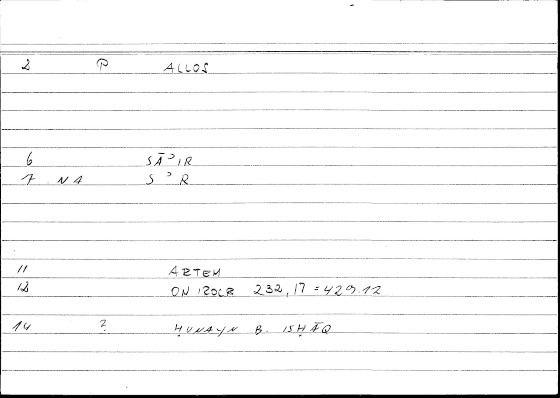 2 P ALLOS
6 SĀᵓIR
7 NA SᵓR
11 ARTEM
12 232,17 = 429.12
14 ? ḤUNAYN B. ISḤĀQ